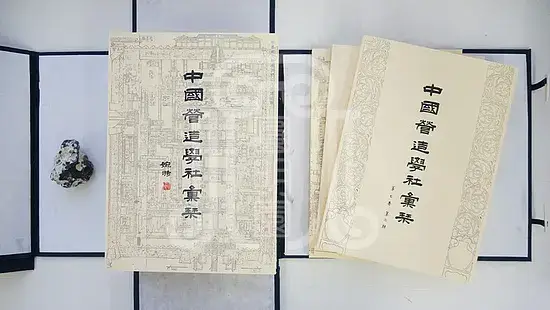 中國營造學社彙栞
中國營造學社彙栞